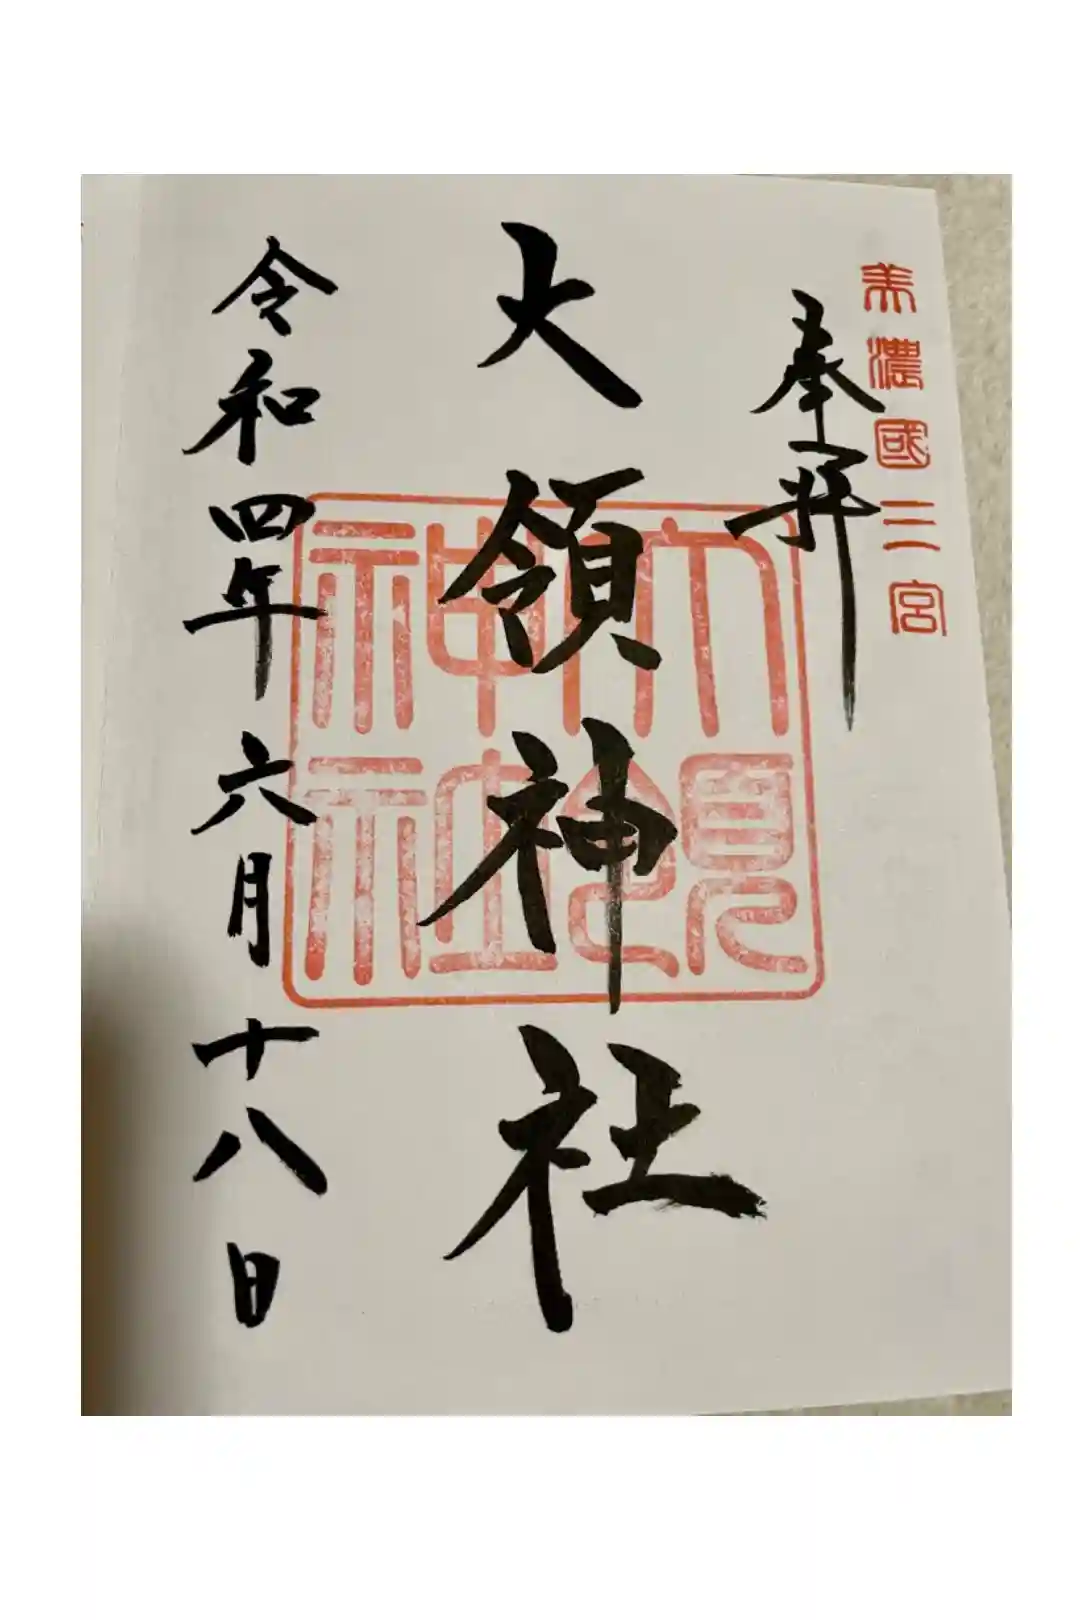 美濃國三宮
奉拝
大領神社
大領
神社
令和四年六月十八日